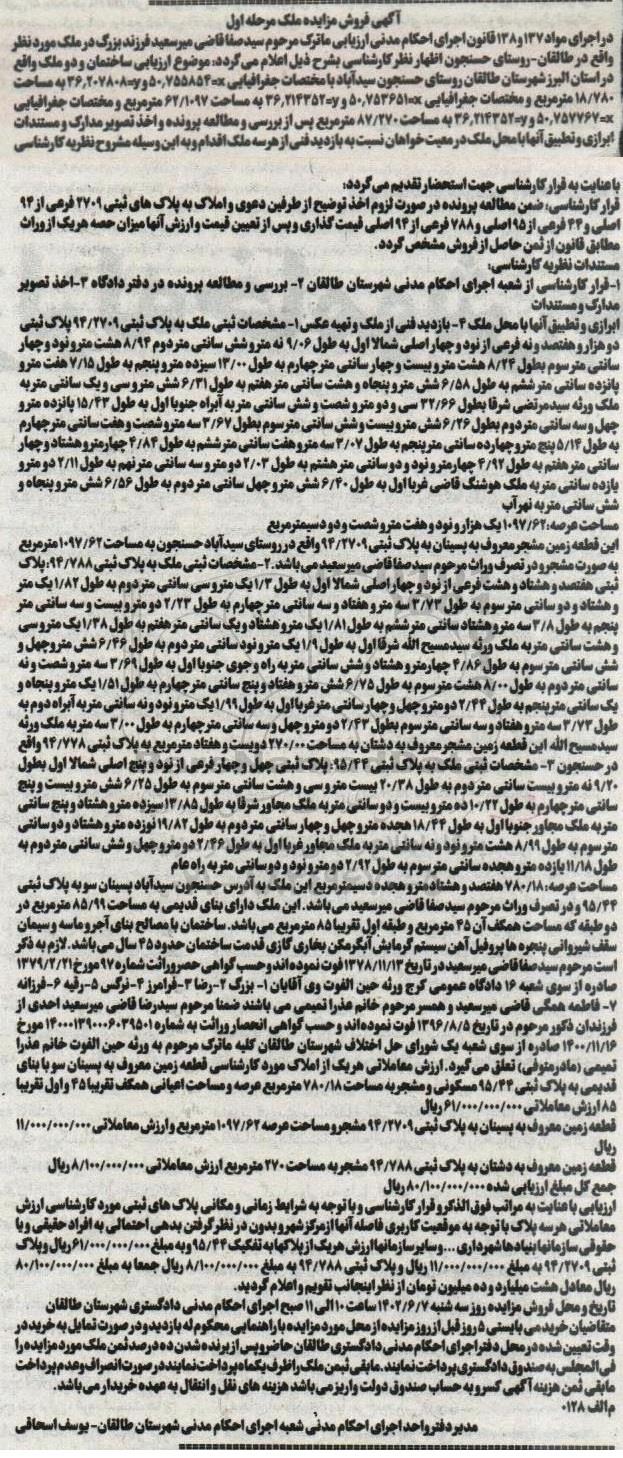 آگهی فروش مزایده ملک مرحله اول
در اجرای مواد ۱۳۷ و ۱۳۸ قانون اجرای احکام مدنی ارزیابی ماترک مرحوم سیدصفا قاضی میرسعید فرزند بزرگ در ملک مورد نظر
واقع در طالقان- روستای حسنجون اظهار نظر کارشناسی بشرح ذیل اعلام می‌گردد: موضوع ارزیابی ساختمان و دو ملک واقع
در استان البرز شهرستان طالقان روستای حسنجون سیدآباد با مختصات جغرافیایی x=۵۰,۷۵۵۸۵۴ و y=۳۶,۲۰۷۸۰۸ به مساحت
۱۸/۷۸۰ مترمربع و مختصات جغرافیایی x=۵۰,۷۵۳۶۵۱ و y=۳۶,۲۱۴۳۵۲ به مساحت ۶۲/۱۰۹۷ مترمربع و مختصات جغرافیایی
x=۵۰,۷۵۷۷۶۷ و y=۳۶,۲۱۴۳۵۲ به مساحت ۸۷/۲۷۰ مترمربع پس از بررسی و مطالعه پرونده و اخذ تصویر مدارک و مستندات
ابرازی و تطبیق آنها با محل ملک در معیت خواهان نسبت به بازدید فنی از هر سه ملک اقدام و به این وسیله مشروح نظریه کارشناسی
با عنایت به قرار کارشناسی جهت استحضار تقدیم می گردد:
قرار کارشناسی: ضمن مطالعه پرونده در صورت لزوم اخذ توضیح از طرفین دعوی و املاک به پلاک های ثبتی ۲۷۰۹ فرعی از ۹۴
اصلی و ۴۴ فرعی از ۹۵ اصلی و ۷۸۸ فرعی از ۹۴ اصلی قیمت گذاری و پس از تعیین قیمت و ارزش آنها میزان حصه هر یک از وراث
مطابق قانون از ثمن حاصل از فروش مشخص گردد.
مستندات نظریه کارشناسی:
۱-قرار کارشناسی از شعبه اجرای احکام مدنی شهرستان طالقان ۲- بررسی و مطالعه پرونده در دفتر دادگاه ۳-اخذ تصویر
مدارک و مستندات
ابرازی و تطبیق آنها با محل ملک ۴- بازدید فنی از ملک و تهیه عکس ۱- مشخصات ثبتی ملک به پلاک ثبتی ۹۴/۲۷۰۹ پلاک ثبتی
دو هزار و هفتصد و نه فرعی از نود و چهار اصلی شمالا اول به طول ۹/۰۶ نه متر و شش سانتی متر دوم ۸/۹۴ هشت متر و نود و چهار
سانتی متر سوم بطول ۸/۲۴ هشت متر و بیست و چهار سانتی متر چهارم به طول ۱۳/۰۰ سیزده متر و پنجم به طول ۷/۱۵ هفت متر و
پانزده سانتی متر ششم به طول ۶/۵۸ شش متر و پنجاه و هشت سانتی متر هفتم به طول ۶/۳۱ شش متر و سی و یک سانتی متر به
ملک ورثه سیدمرتضی شرقا بطول ۳۲/۶۶ سی و دو متر و شصت و شش سانتی متر به آبراه جنوبا اول به طول ۱۵/۴۳ پانزده متر و
چهل و سه سانتی متر دوم بطول ۶/۲۶ شش متر و بیست و شش سانتی متر سوم بطول ۳/۶۷ سه متر و شصت و هفت سانتی متر چهارم
به طول ۵/۱۴ پنج متر و چهارده سانتی متر پنجم به طول ۳/۰۷ سه متر و هفت سانتی متر ششم به طول ۴/۸۴ چهار متر و هشتاد و چهار
سانتی متر هفتم به طول ۴/۹۲ چهار متر و نود و دو سانتی متر هشتم به طول ۲/۰۳ دو متر و سه سانتی متر نهم به طول ۲/۱۱ دو متر و
یازده سانتی متر به ملک هوشنگ قاضی غربا اول به طول ۶/۴۰ شش متر و چهل سانتی متر دوم به طول ۶/۵۶ شش متر و پنجاه و
شش سانتی متر به نهر آب
مساحت عرصه: ۱۰۹۷/۶۲ یک هزار و نود و هفت متر و شصت و دو دسیمترمربع
این قطعه زمین مشجر معروف به پسینان به پلاک ثبتی ۹۴/۲۷۰۹ واقع در روستای سیدآباد حسنجون به مساحت ۱۰۹۷/۶۲ مترمربع
به صورت مشجر و در تصرف وراث مرحوم سیدصفا قاضی میرسعید می باشد. ۲-مشخصات ثبتی ملک به پلاک ثبتی ۹۴/۷۸۸: پلاک
ثبتی هفتصد و هشتاد و هشت فرعی از نود و چهار اصلی شمالا اول به طول ۱/۳ یک متر و سی سانتی متر دوم به طول ۱/۸۲ یک متر
و هشتاد و دو سانتی متر سوم به طول ۳/۷۳ سه متر و هفتاد و سه سانتی متر چهارم به طول ۲/۲۳ دو متر و بیست و سه سانتی متر
پنجم به طول ۳/۸ سه متر و هشتاد سانتی متر ششم به طول ۱/۸۱ یک متر و هشتاد و یک سانتی متر هفتم به طول ۱/۳۸ یک متر و سی
و هشت سانتی متر به ملک ورثه سیدمسیح الله شرقا اول به طول ۱/۹ یک متر و نود سانتی متر دوم به طول ۶/۴۶ شش متر و چهل و
شش سانتی متر سوم به طول ۴/۸۶ چهارمتر و هشتاد و شش سانتی متر به راه و جوی جنوبا اول به طول ۳/۶۹ سه متر و شصت و نه
سانتی متر دوم به طول ۸/۰۰ هشت متر سوم به طول ۶/۷۵ شش متر و هفتاد و پنج سانتی متر چهارم به طول ۱/۵۱ یک متر و پنجاه و
یک سانتی متر پنجم به طول ۲/۴۴ دو متر و چهل و چهار سانتی متر غربا اول به طول ۱/۹۹ یک متر و نود و نه سانتی متر به آبراه دوم به
طول ۳/۷۳ سه متر و هفتاد و سه سانتی متر سوم بطول ۲/۴۳ دو متر و چهل و سه سانتی متر چهارم به طول ۳/۰۰ سه متر به ملک ورثه
سیدمسیح الله این قطعه زمین مشجر معروف به دشتان به مساحت ۲۷۰/۰۰ دویست و هفتاد مترمربع به پلاک ثبتی ۹۴/۷۷۸ واقع
در حسنجون ۳- مشخصات ثبتی ملک به پلاک ثبتی ۹۵/۴۴: پلاک ثبتی چهل و چهار فرعی از نود و پنج اصلی شمالا اول بطول
۹/۲۰ نه متر و بیست سانتی متر دوم به طول ۲۰/۳۸ بیست متر و سی و هشت سانتی متر سوم به طول ۶/۲۵ شش متر و بیست و پنج
سانتی متر چهارم به طول ۱۰/۲۲ ده متر و بیست و دو سانتی متر به ملک مجاور شرقا به طول ۱۳/۸۵ سیزده متر و هشتاد و پنج سانتی
متر به ملک مجاور جنوبا اول به طول ۱۸/۴۴ هجده متر و چهل و چهار سانتی متر دوم به طول ۱۹/۸۲ نوزده متر و هشتاد و دو سانتی
متر سوم به طول ۸/۹۹ هشت متر و نود و نه سانتی متر به ملک مجاور غربا اول به طول ۲/۴۶ دو متر و چهل و شش سانتی متر دوم به
طول ۱۱/۱۸ یازده متر و هجده سانتی متر سوم به طول ۲/۹۲ دو متر و نود و دو سانتی متر به راه عام
مساحت عرصه: ۷۸۰/۱۸ هفتصد و هشتاد متر و هجده دسیمترمربع این ملک به آدرس حسنجون سیدآباد پسینان سو به پلاک ثبتی
۹۵/۴۴ و در تصرف وراث مرحوم سیدصفا قاضی میرسعید می باشد. این ملک دارای بنای قدیمی به مساحت ۸۵/۹۹ مترمربع در
دو طبقه که مساحت همکف آن ۴۵ مترمربع و طبقه اول تقریبا ۸۵ مترمربع می باشد. ساختمان با مصالح بنای آجر و ماسه و سیمان
سقف شیروانی پنجره ها پروفیل آهن سیستم گرمایش آبگرمکن بخاری گازی قدمت ساختمان حدود ۴۵ سال می باشد. لازم به ذکر
است مرحوم سیدصفا قاضی میرسعید در تاریخ ۱۳۷۸/۱۱/۱۳ فوت نموده اند و حسب گواهی حصر وراثت شماره ۹۷ مورخ ۱۳۷۹/۲/۲۱
صادره از سوی شعبه ۱۶ دادگاه عمومی کرج ورثه حین الفوت وی آقایان ۱- بزرگ ۲-رضا ۳-فرامرز ۴-نرگس ۵-رقیه ۶-فرزانه
۷- فاطمه همگی قاضی میرسعید و همسر مرحوم خانم عذرا تمیمی می باشند ضمنا مرحوم سیدرضا قاضی میرسعید احدی از
فرزندان ذکور مرحوم در تاریخ ۱۳۹۶/۸/۵ فوت نموده‌اند و حسب گواهی انحصار وراثت به شماره ۱۴۰۰۰۱۳۹۰۰۰۶۰۳۹۵۰۱ مورخ
۱۴۰۰/۱۱/۱۶ صادره از سوی شعبه یک شورای حل اختلاف شهرستان طالقان کلیه ماترک مرحوم به ورثه حین الفوت خانم عذرا
تمیمی (مادر متوفی) تعلق می گیرد. ارزش معاملاتی هر یک از املاک مورد کارشناسی قطعه زمین معروف به پسینان سو با بنای
قدیمی به پلاک ثبتی ۹۵/۴۴ مسکونی و مشجر به مساحت ۷۸۰/۱۸ مترمربع عرصه و مساحت اعیانی همکف تقریبا ۴۵ و اول تقریبا
۸۵ ارزش معاملاتی ۶۱/۰۰۰/۰۰۰/۰۰۰ ریال
قطعه زمین معروف به پسینان به پلاک ثبتی ۹۴/۲۷۰۹ مشجر و مساحت عرصه ۱۰۹۷/۶۲ مترمربع و ارزش معاملاتی ۱۱/۰۰۰/۰۰۰/۰۰۰
ریال
قطعه زمین معروف به دشتان به پلاک ثبتی ۹۴/۷۸۸ مشجر به مساحت ۲۷۰ مترمربع ارزش معاملاتی ۸/۱۰۰/۰۰۰/۰۰۰ ریال
جمع کل مبلغ ارزیابی شده ۸۰/۱۰۰/۰۰۰/۰۰۰ ریال
ارزیابی با عنایت به مراتب فوق الذکر و قرار کارشناسی و با توجه به شرایط زمانی و مکانی پلاک های ثبتی مورد کارشناسی ارزش
معاملاتی هر سه پلاک با توجه به موقعیت کاربری فاصله آنها از مرکز شهر و بدون در نظر گرفتن بدهی احتمالی به افراد حقیقی و یا
حقوقی سازمانها بنیادها شهرداری ... و سایر سازمانها ارزش هر یک از پلاکها به تفکیک ۹۵/۴۴ و به مبلغ ۶۱/۰۰۰/۰۰۰/۰۰۰ ریال و پلاک
ثبتی ۹۴/۲۷۰۹ به مبلغ ۱۱/۰۰۰/۰۰۰/۰۰۰ ریال و پلاک ثبتی ۹۴/۷۸۸ به مبلغ ۸/۱۰۰/۰۰۰/۰۰۰ ریال جمعا به مبلغ ۸۰/۱۰۰/۰۰۰/۰۰۰
ریال معادل هشت میلیارد و ده میلیون تومان از نظر اینجانب تقویم و اعلام گردید.
تاریخ و محل فروش مزایده روز سه شنبه ۱۴۰۲/۶/۷ ساعت ۱۰ الی ۱۱ صبح اجرای احکام مدنی دادگستری شهرستان طالقان
متقاضیان خرید می بایستی ۵ روز قبل از روز مزایده از محل مورد مزایده با راهنمایی محکوم له بازدید و در صورت تمایل به خرید در
وقت تعیین شده در محل دفتر اجرای احکام مدنی دادگستری طالقان حاضر و پس از برنده شدن ده درصد ثمن ملک مورد مزایده را
فی المجلس به صندوق دادگستری پرداخت نمایند. مابقی ثمن ملک را ظرف یکماه پرداخت نمایند در صورت انصراف و عدم پرداخت
مابقی ثمن هزینه آگهی کسر و به حساب صندوق دولت واریز می باشد هزینه های نقل و انتقال به عهده خریدار می باشد.
م الف ۰۱۲۸
مدیر دفتر واحد اجرای احکام مدنی شعبه اجرای احکام مدنی شهرستان طالقان- یوسف اسحاقی